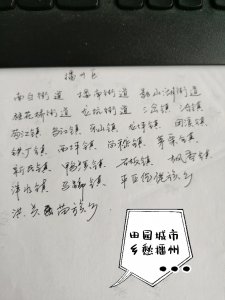 播州区
南白街道 播南街道 影山湖街道
桂花桥街道 龙坑街道 三岔镇
苟江镇 乌江镇 乐山镇 龙坪镇 团溪镇
铁厂镇 西坪镇 尚嵇镇 茅栗镇
新民镇 鸭溪镇 石板镇 枫香镇
泮水镇 马蹄镇 平正仡佬族乡
洪关苗族乡
田园城市
乡愁播州